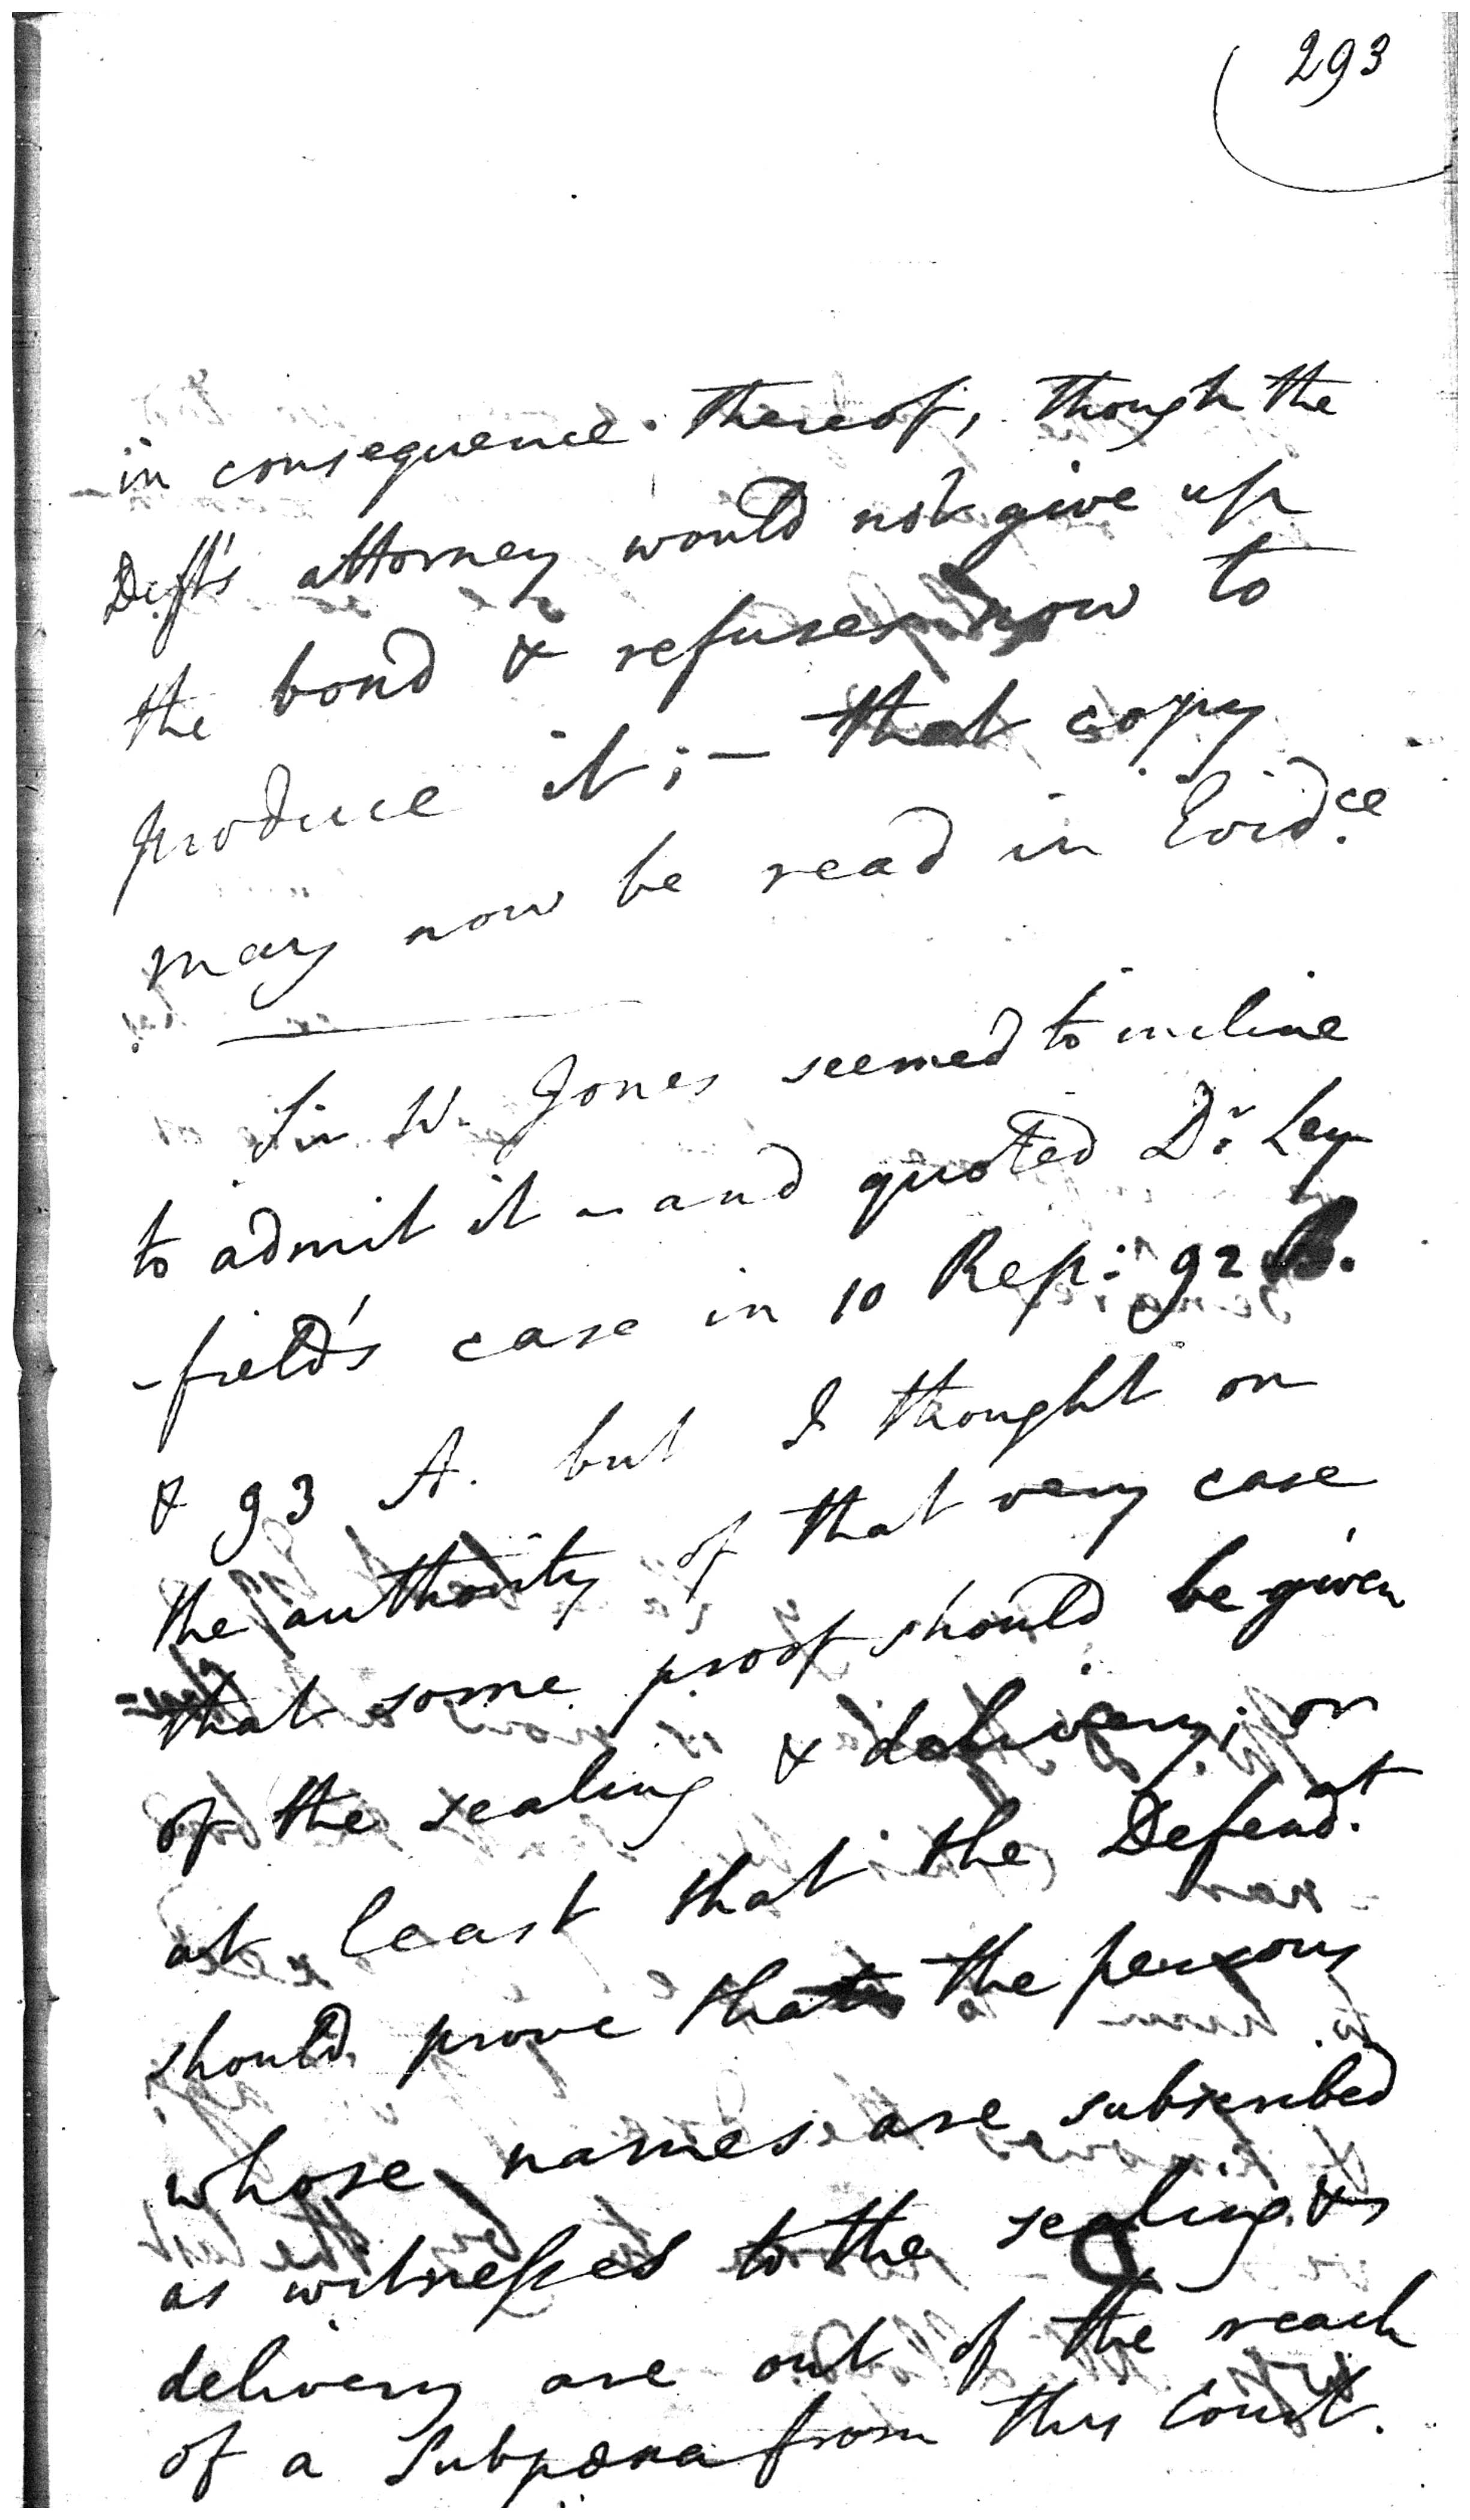 293
in consequence thereof, though the
Deft's attorney would not give up
the bond & refuses now to
produce it; — that copy
may now be read in Evid.ce
Sir W. Jones seemed to incline
to admit it - and quoted Dr. Ley
-field's case in 10 Rep: 92 B.
& 93 A. but I thought on
the authority of that very case
that some proof should be given
of the sealing & delivery; or
at least that the Defend.t
should prove that the persons
whose names are subscribed
as witnesses to the sealing &
delivery are out of the reach
of a Subpoena from this Court.